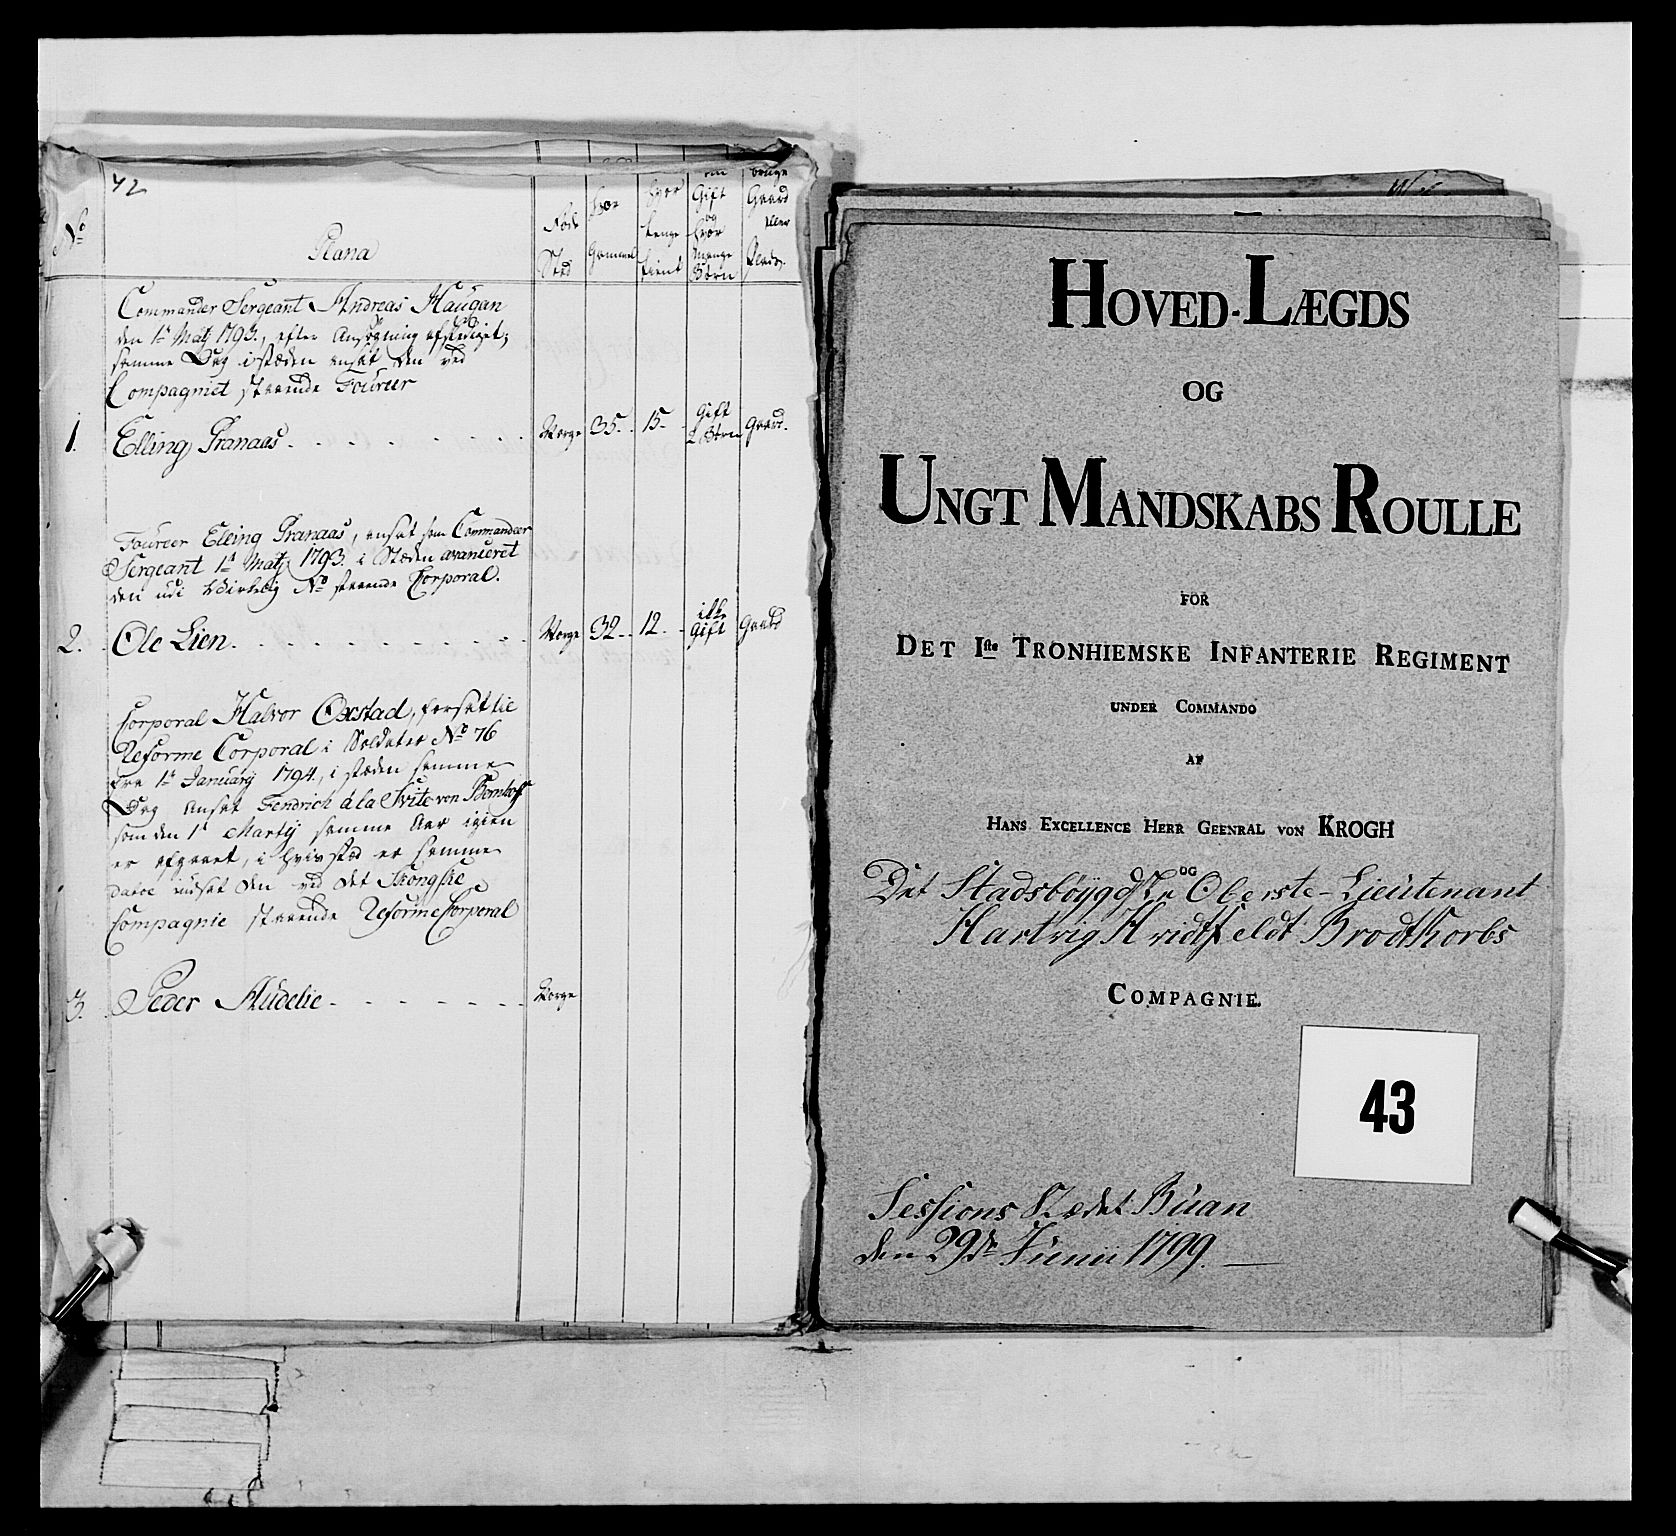 42
No
Plana
Føde Sted
Hvor Gammel
Hvor Lenge tient
om Gift og hvor Mange Børn
bruge Gaard eller Plads.
Commander Sergeant Andreas Haugan
den 1te Martz 1793., efter Ansøgning afskediget;
samme Dag i stæden ansat den ved
Compagniet staaende Foureer
1. Elling Granaas Norge 35. 15. Gift 2 Børn Gaard.
Foureer Elling Granaas, ansat som Commandeer
Sergeant 1te Martz 1793. i Stæden avanceret
den udi No staaende Corporal.
2. Ole Lien Norge 32 12 ikke Gift Gaard
Corporal Halvor Oxstad, forsat til
Reforme Corporal i Soldater No 76
fra 1te January 1794., i stæden samme
Dag ansat Fendrich á la Svite von
som den 1te Martij samme Aar igien
er afgaaet, i hvis stæd er samme
Dato indsat den ved det
Compagnie staaende Reforme Corporal
3. Peder Norge
HOVED-LÆGDS
OG
UNGT MANDSKABS ROULLE
FOR
DET Iste TRONHIEMSKE INFANTERIE REGIMENT
UNDER COMMANDO
AF
HANS EXCELLENCE HERR GEENRAL VON KROGH
OG
Det Stadsböygdske Oberste-Lieutenant
Hartvig Hvidtfeldt Brodtkorbs
COMPAGNIE.
43
Sessions Stædet Büan
den 29de Junii 1799.